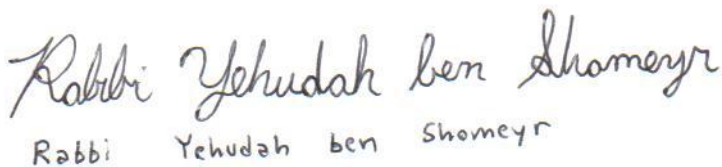 Rabbi Yehudah ben Shomeyr
Rabbi Yehudah ben Shomeyr